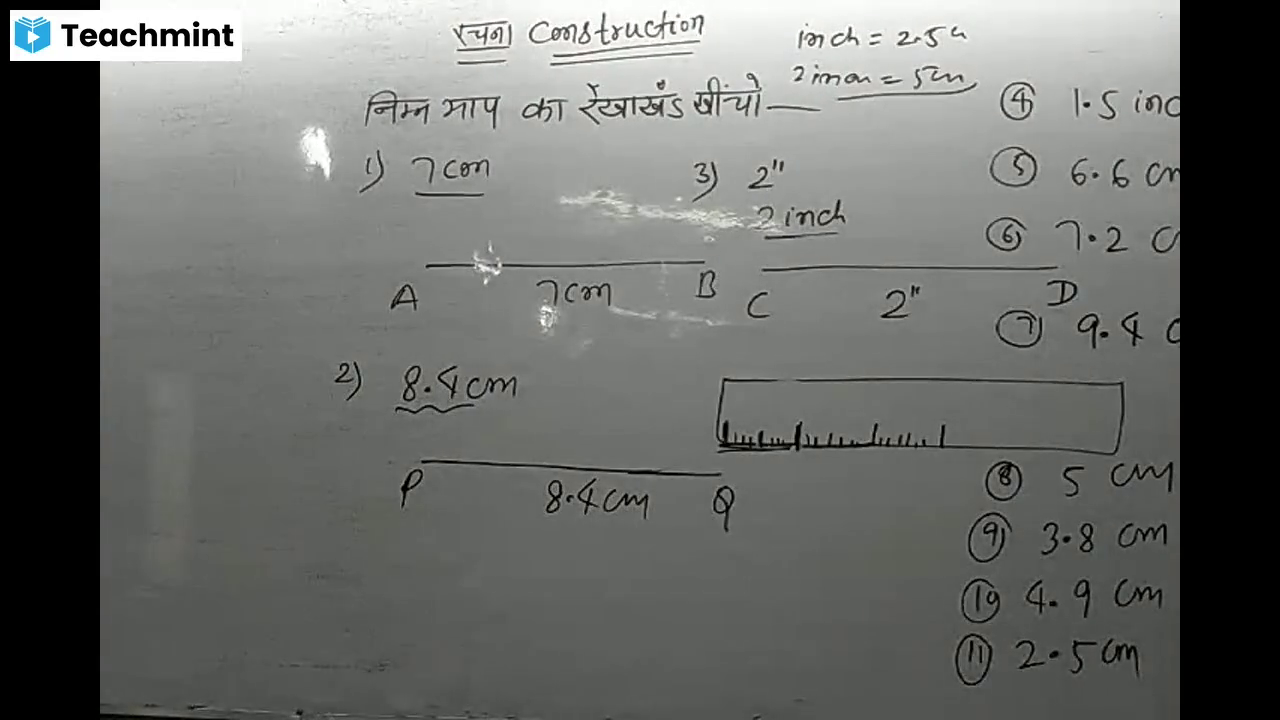 Teachmint
रचना Construction
inch = 2.5
2 inch = 5cm
निम्न माप का रेखाखंड खींचो —
1) 7cm
A 7cm B
2) 8.4cm
P 8.4cm Q
3) 2"
2 inch
C 2" D
④ 1.5 inc
⑤ 6.6 cm
⑥ 7.2 c
⑦ 9.4 c
⑧ 5 cm
⑨ 3.8 cm
⑩ 4.9 cm
⑪ 2.5cm